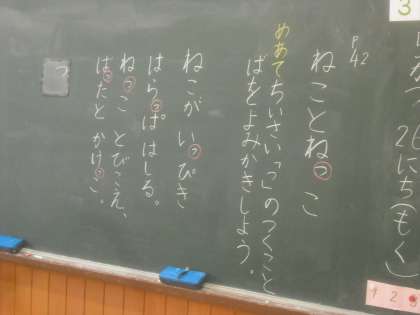 26にち(もく)
P42
ねことねっこ
めあて ちいさい「っ」のつくこと
ばをよみかきしよう。
ねこがいっぴき
はらっぱはしる。
ねっことびこえ、
はったとかけっこ。
っ
3